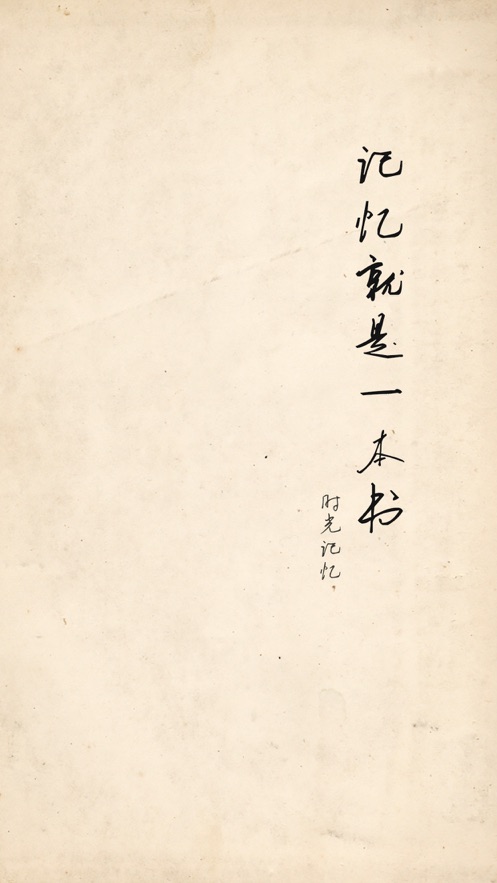 记忆就是一本书
时光记忆